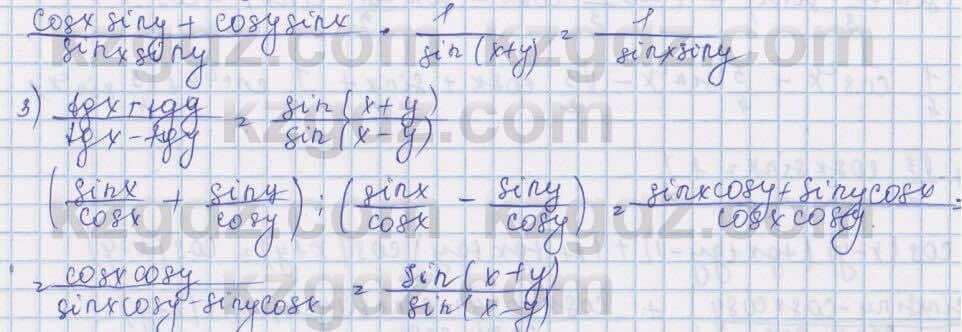 (cosx siny + cosy sinx)/(sinx siny) · 1/(sin(x+y)) = 1/(sinxsiny)
3) (tgx + tgy)/(tgx - tgy) = (sin(x+y))/(sin(x-y))
(sinx/cosx + siny/cosy) : (sinx/cosx - siny/cosy) = (sinxcosy + sinycosx)/(cosxcosy) :
= (cosxcosy)/(sinxcosy - sinycosx) = (sin(x+y))/(sin(x-y))
kzgdz.com